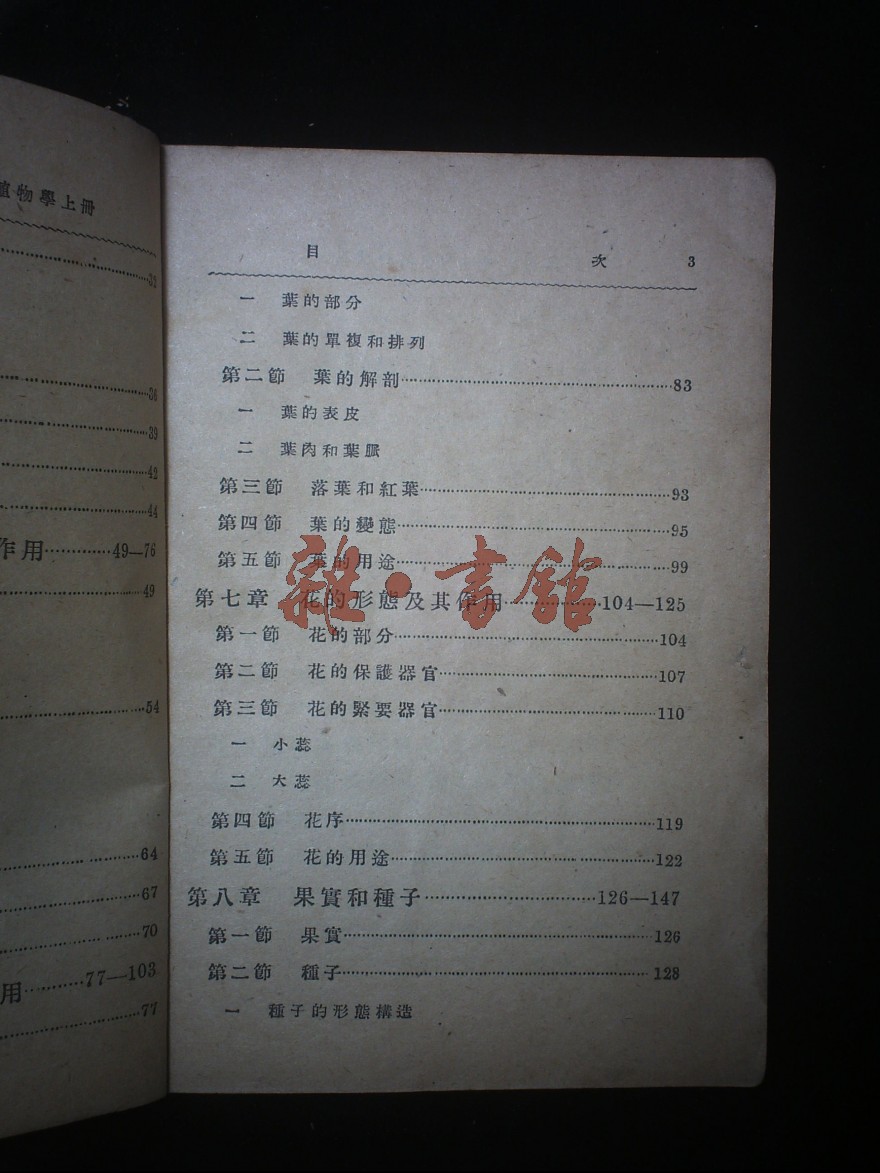 植物學上冊
33
38
39
42
44
作用············49—76
49
54
64
67
70
用···········77—103
77
目 次 3
一 葉的部分
二 葉的單複和排列
第二節 葉的解剖············83
一 葉的表皮
二 葉肉和葉脈
第三節 落葉和紅葉············93
第四節 葉的變態············95
第五節 葉的用途············99
第七章 花的形態及其作用············104—125
第一節 花的部分············104
第二節 花的保護器官············107
第三節 花的緊要器官············110
一 小蕊
二 大蕊
第四節 花序············119
第五節 花的用途············122
第八章 果實和種子············126—147
第一節 果實············126
第二節 種子············128
一 種子的形態構造
雜·書館